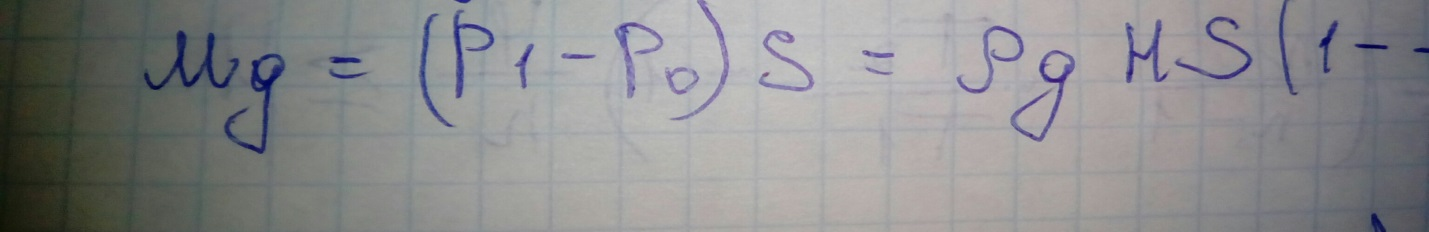 Mg = (P₁ - P₀) S = ρg HS (1 -